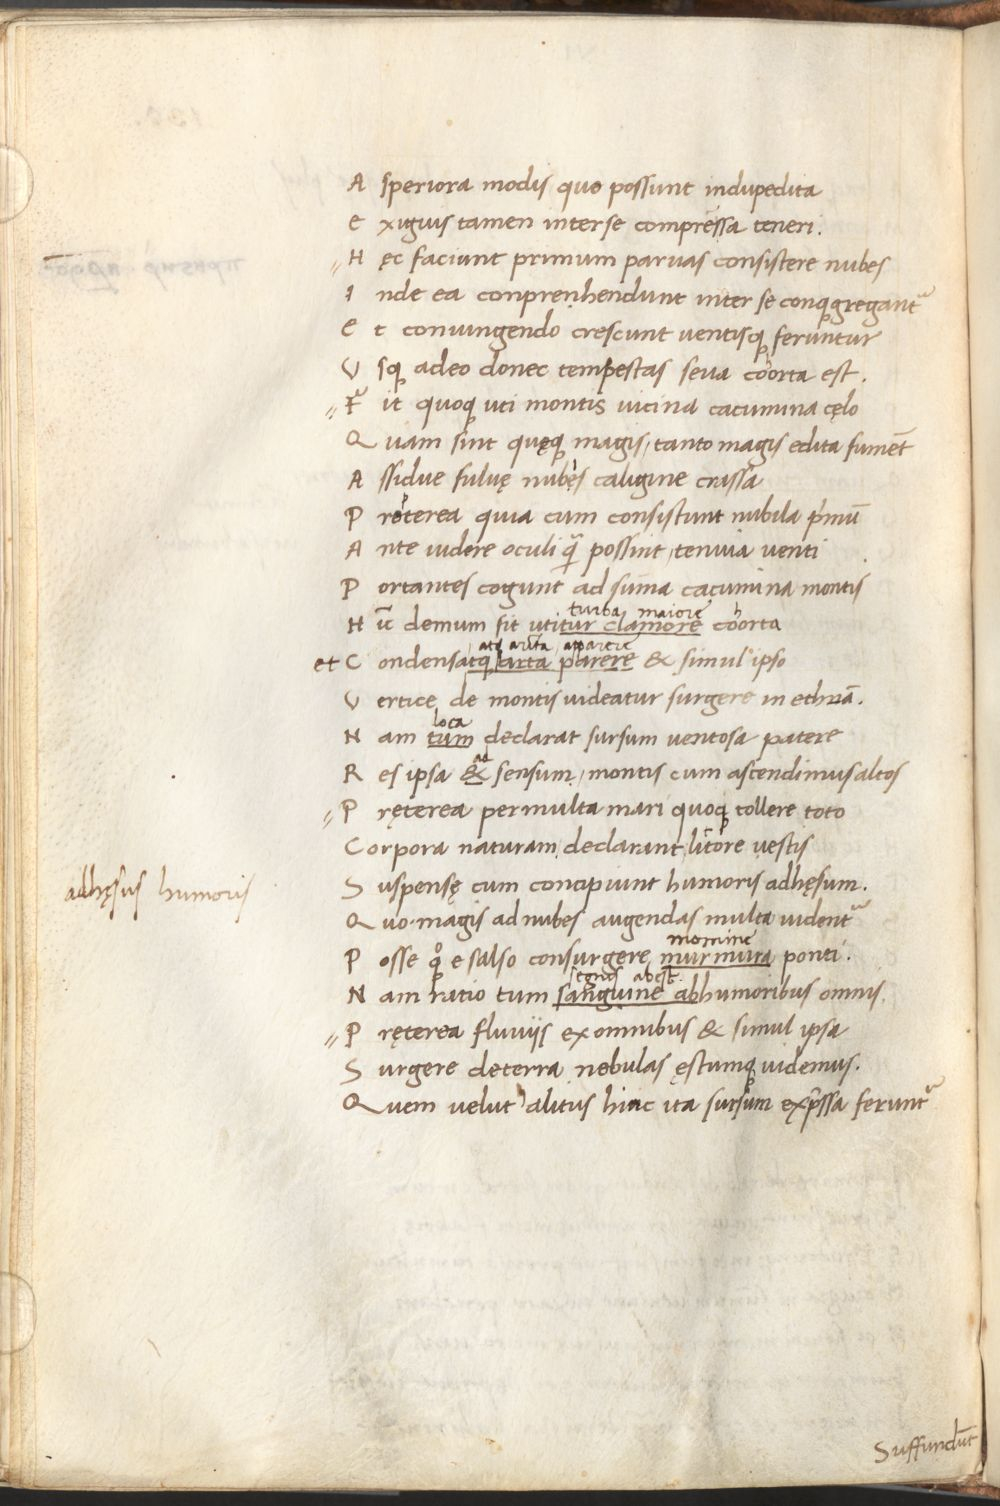 A speriora modis quo possunt indupedita
E xiguis tamen inter se compressa teneri.
H ęc faciunt primum paruas consistere nubes
I nde ea conprenhendunt inter se conq; gregant᷑
E t coniungendo crescunt uentisq; feruntur
V sq; adeo donec tempestas seua cohorta est.
F it quoq; uti montis uicina cacumina cęlo
Q uam sint quęq; magis, tanto magis edita fumẽt
A ssidue fuluę nubis caligine crassa
P ropterea quia cum consistunt nubila p̃mũ
A nte uidere oculi quã possint, tenuia uenti
P ortantes cogunt ad suma cacumina montis
turba maiore
H ic demum fit utitur clamore cohorta
atq arta apparere
et C ondensatq; arta parere & simul ipso
V ertice de montis uideatur surgere in ethrã.
loca
N am tum declarat sursum uentosa patere
ad
R es ipsa & sensum, montis cum ascendimus altos
P ręterea permulta mari quoq; tollere toto
C orpora naturam declarant litore uestis
adhęsus humoris
S uspensę cum concipiunt humoris adhęsum.
Q uo magis ad nubes augendas multa uident᷑
momine
P osse qͦ e salso consurgere murmura ponti.
abest.
N am ratio tum sanguine abhumoribus omnis.
P ręterea fluuijs ex omnibus & simul ipsa
S urgere deterra nebulas ęstumq; uidemus.
Q uem uelut alitus hinc ita sursum exp̃ssa ferunt᷑
Suffundũt